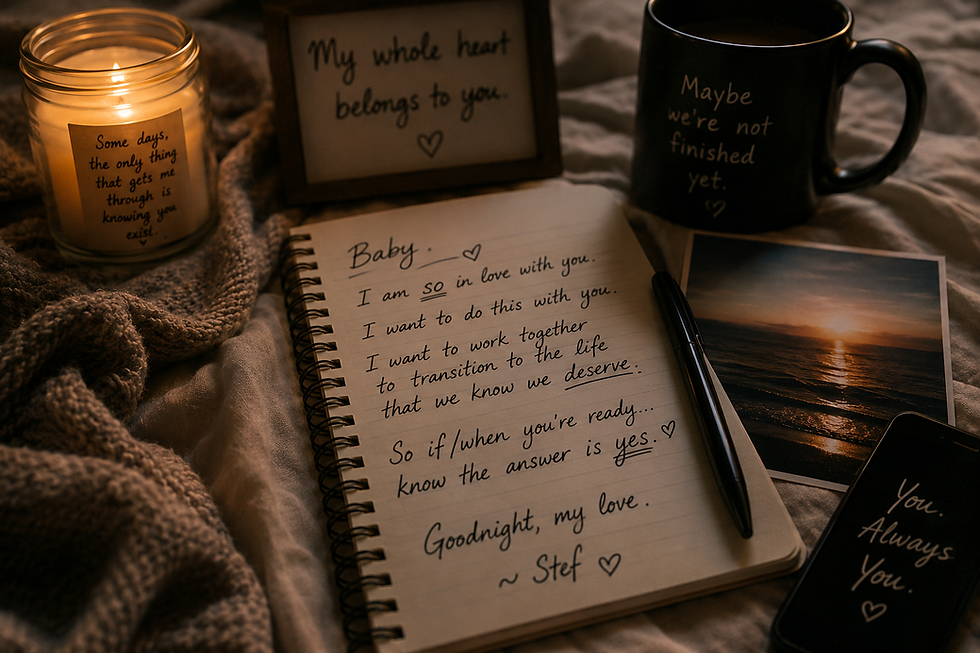 Some days,
the only thing
that gets me
through is
knowing you
exist.
My whole heart
belongs to you.
Maybe
we're not
finished
yet.
Baby.
I am so in love with you.
I want to do this with you.
I want to work together
to transition to the life
that we know we deserve.
So if/when you're ready...
know the answer is yes.
Goodnight, my love.
~ Stef
You.
Always
You.